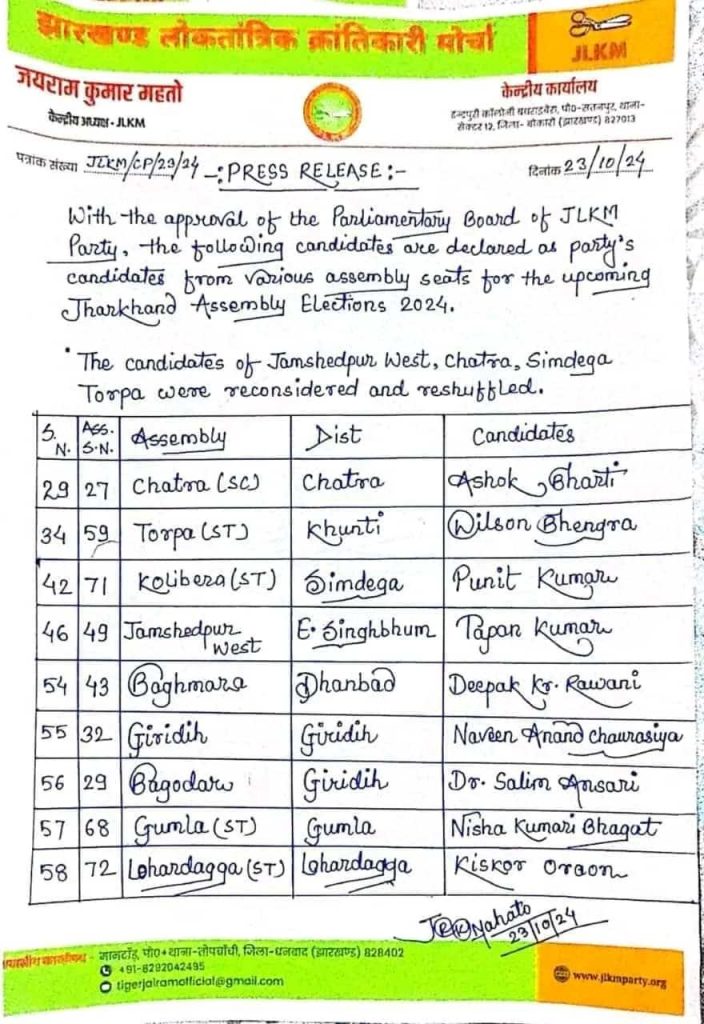 झारखण्ड लोकतांत्रिक क्रांतिकारी मोर्चा
JLKM
जयराम कुमार महतो
केन्द्रीय अध्यक्ष - JLKM
केन्द्रीय कार्यालय
इन्द्रपुरी कॉलोनी पो०-सतनपुर, थाना-
सेक्टर 12, जिला- बोकारो (झारखण्ड) 827013
पत्रांक संख्या JLKM/CP/29/24 -:PRESS RELEASE:- दिनांक 23/10/24
With the approval of the Parliamentary Board of JLKM
Party, the following candidates are declared as party's
candidates from various assembly seats for the upcoming
Jharkhand Assembly Elections 2024.
• The candidates of Jamshedpur West, Chatra, Simdega
Torpa were reconsidered and reshuffled.
S.N. Ass. S.N. Assembly Dist Candidates
29 27 Chatra (SC) Chatra Ashok Bharti
34 59 Torpa (ST) Khunti Wilson Bhengra
42 71 Kolibera (ST) Simdega Punit Kumar
46 49 Jamshedpur West E. Singhbhum Tapan Kumar
54 43 Baghmara Dhanbad Deepak Kr. Rawani
55 32 Giridih Giridih Naveen Anand Chaurasiya
56 29 Bagodar Giridih Dr. Salim Ansari
57 68 Gumla (ST) Gumla Nisha Kumari Bhagat
58 72 Lohardagga (ST) Lohardagga Kiskor Oraon
Mahato
23/10/24
मानटाँड़, पो०+थाना-तोपचाँची, जिला-धनबाद (झारखण्ड) 828402
+91-8292042495
tigerjairamofficial@gmail.com
www.jlkmparty.org